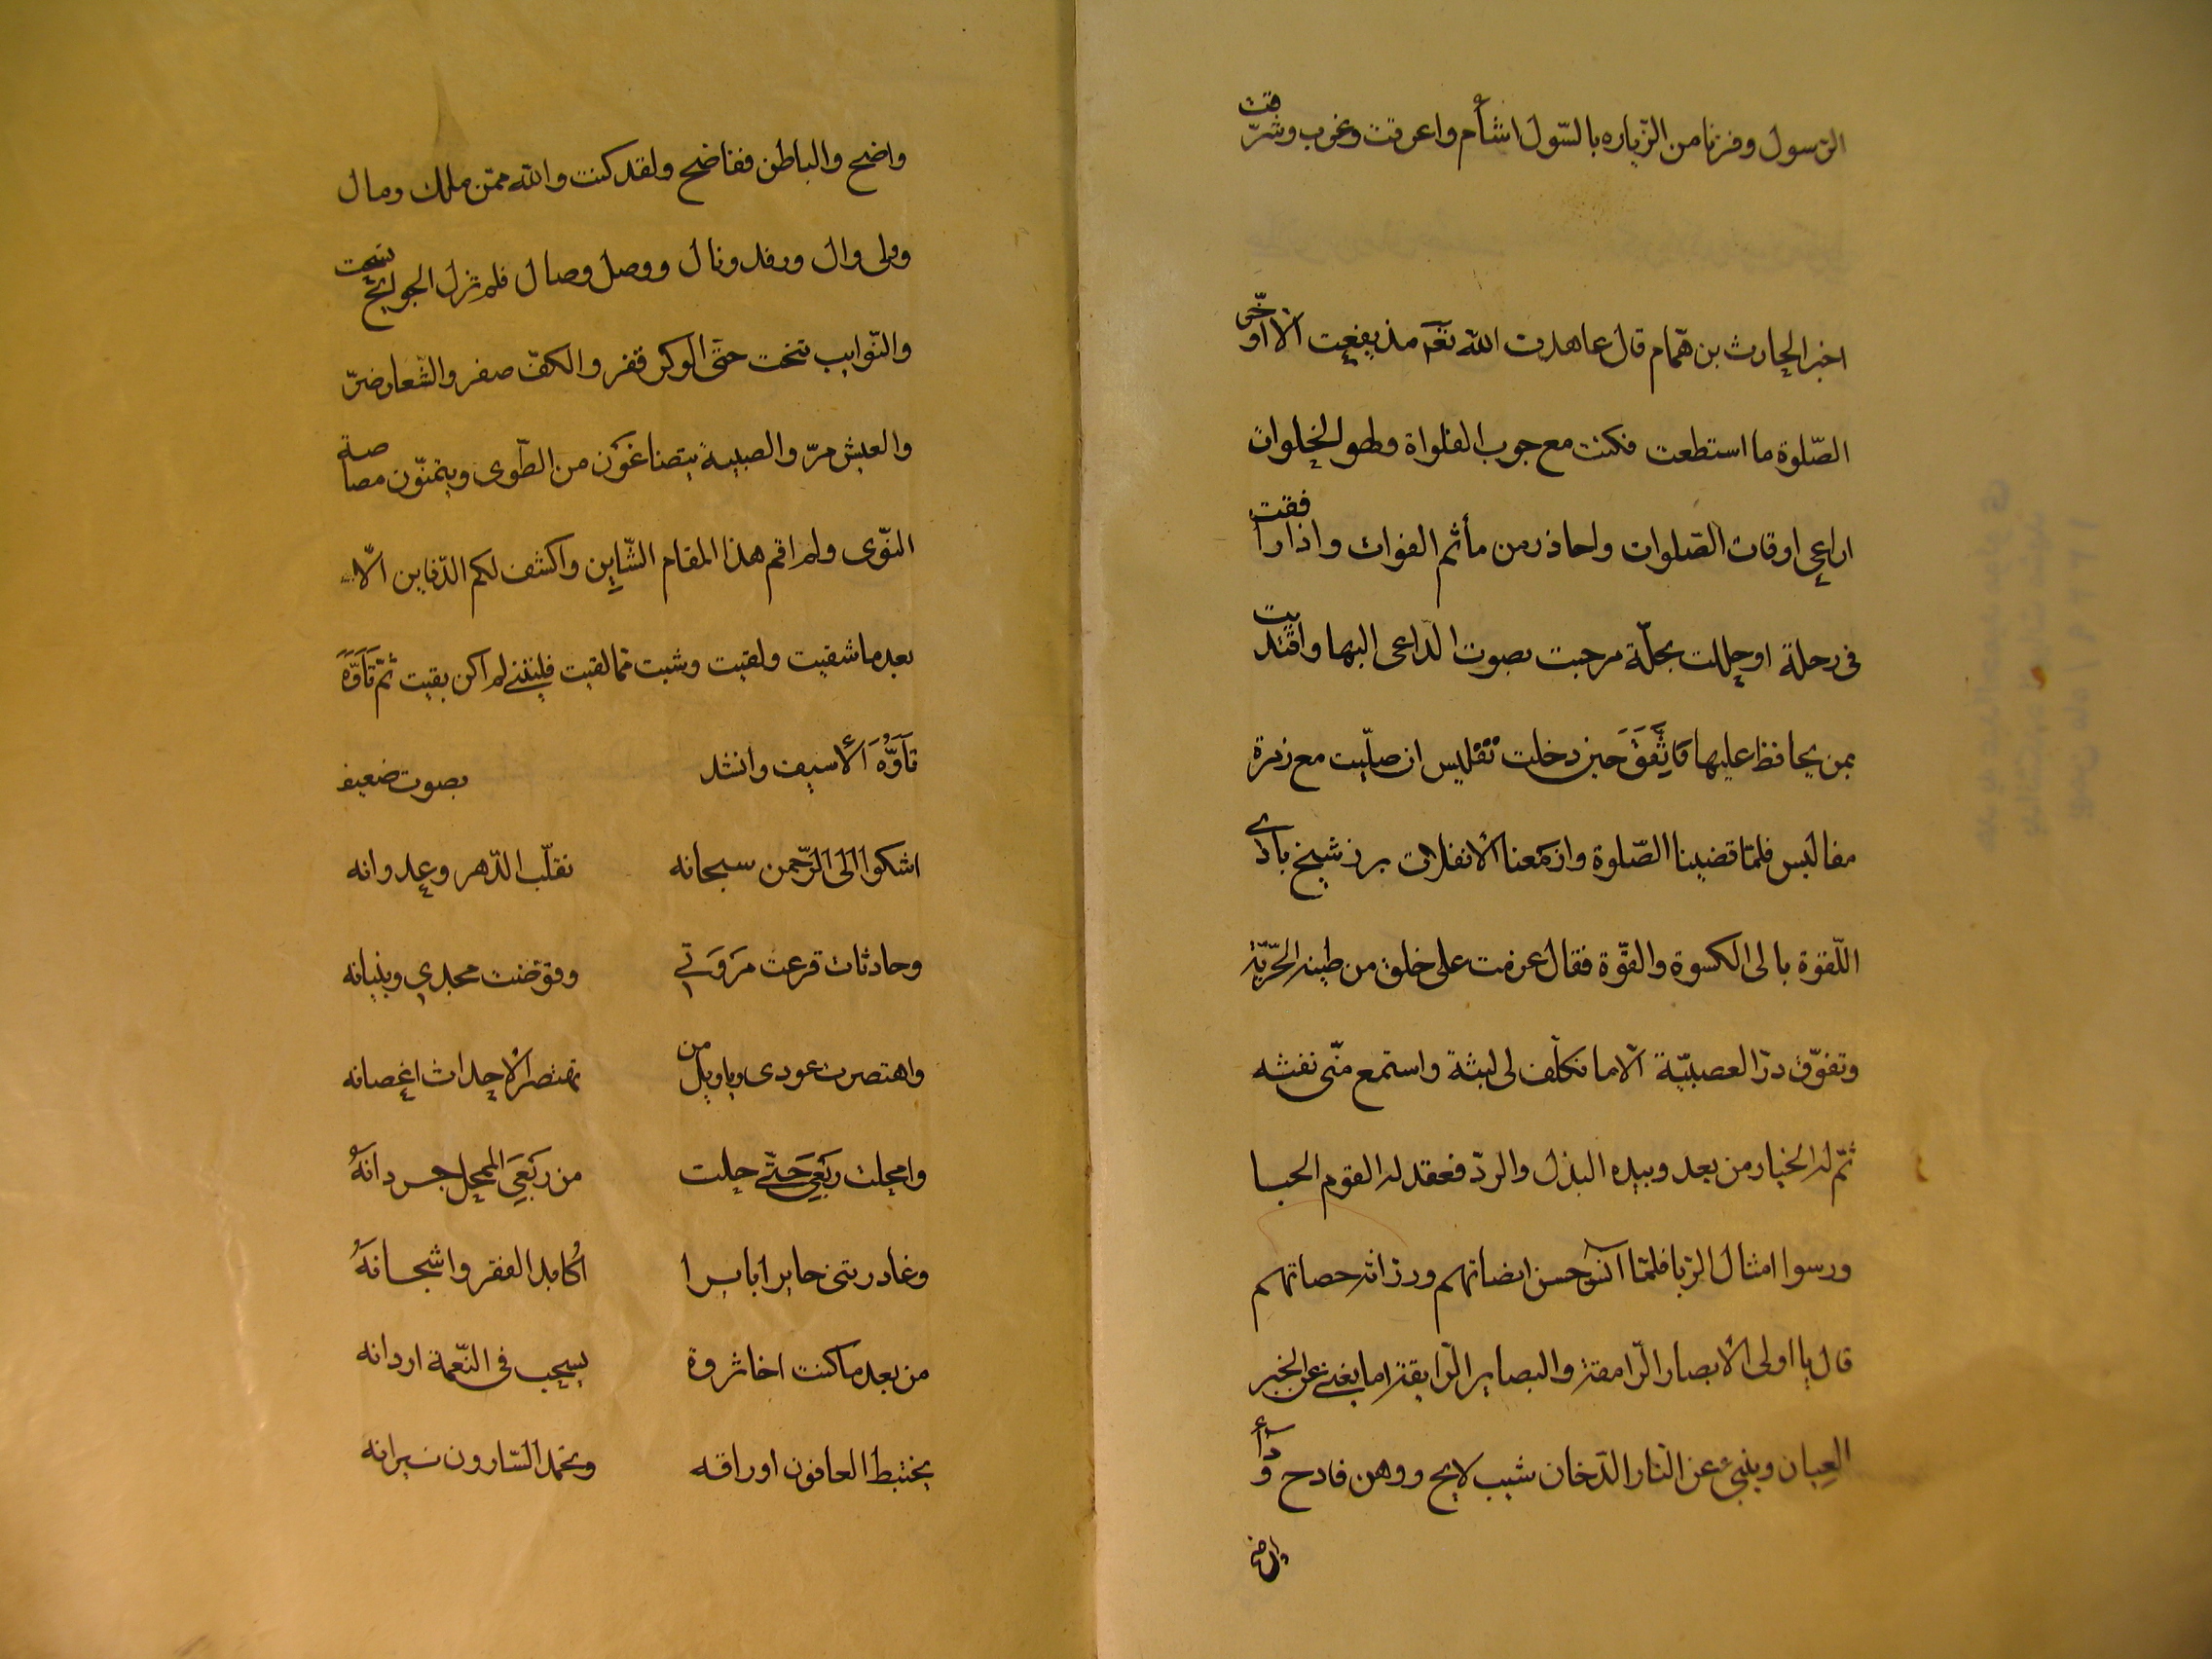 الرّسول وفزنا من الزّياره بالسّول اشأم واعرقت وغرب وشرّقت
اخبر الحارث بن همّام قال عاهدت الله تعٓ مذ يفعت الّا اؤخّر
الصّلوة ما استطعت فكنت مع جوب الفلواة ولهو الخلوات
اراعى اوقات الصّلوات واحاذر من مأثم الفوات واذا رافقت
فى رحلة او حللت بحلّة مرحبت بصوت الدّاعى اليها واقتديت
بمن يحافظ عليها فَاتَّفَقَ حين دخلت تفليس ان صلّيت مع زمرة
مفاليس فلمّا قضينا الصّلوة وازمعنا الأنفلات برز شيخ بادى
اللّقوة بالى الكسوة والقوّة فقال عزمت على خلق من طينه الحرّيّة
وتفوّق درّ العصبيّة الّا ما تكلّف لى لبثة واستمع منّى نفثه
ثمّ له الخيار من بعد وبيده البذل والردّ فعقد له القوم الحبا
ورسوا امثال الرّبا فلمّا آنس حسن انصاتهم ورزانه حصاتهم
قال يا اولى الأبصار الرّامقة والبصاير الرّايقة اما يغنى عن الخبر
العيان وينبئ عن النّار الدّخان شيب لايح ووهن فادح ودآء
واضح
واضح والباطن ففاضح ولقد كنت والله ممّن ملك ومال
وولى وال ورفد ونال ووصل وصال فلم تزل الجوايح تسحت
والنّوايب تنحت حتّى الوكر قفر والكفّ صفر والشّعار ضرّ
والعيش مرّ والصبية يتضاغون من الطّوى ويتمنّون مصاصة
النّوى ولم اقم هذا المقام الشّاين واكشف لكم الدّفاين الّا
بعد ما شقيت ولقيت وشبت ممّا لقيت فليتنى لم اكن بقيت ثمّ تَأَوَّهَ
تَأَوُّهَ الأسيف وانشد بصوت ضعيف
اشكوا الى الرّحمن سبحانه تقلّب الدّهر وعدوانه
وحادثات قرعت مَروَتى وقوّضت مجدي وبنيانه
واهتصرت عودى وياويل من تهتصر الأحداث اغصانه
وامحلت ربعى حَتّى جلت من ربعىَ الممحل جردانهُ
وغادرتنى حايرا بايرا اُكابد الفقر واشجانهُ
من بعد ما كنت اخا ثروة يسحب فى النّعمة اردانه
يختبط العافون اوراقه ويحمد السّارون نيرانه